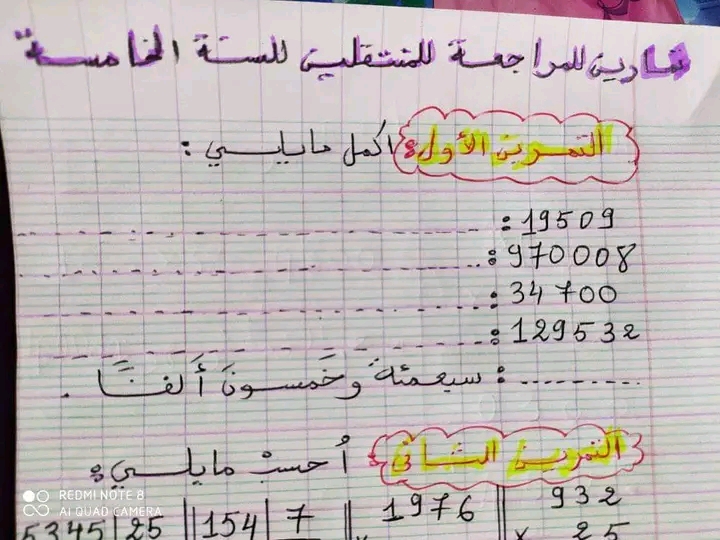 تمارين للمراجعة للمنتقلين للسنة الخامسة
التمرين الأول: اكمل مايلي :
19509 : ------
970008 : ------
34700 : ------
129532 : ------
------ : سبعمئة وخَمسونَ أَلفًا .
التمرين الثاني : اُحسبْ مايلي :
932 | 1976 | 7 | 154 | 25 | 5345
x 25
REDMI NOTE 8
AI QUAD CAMERA